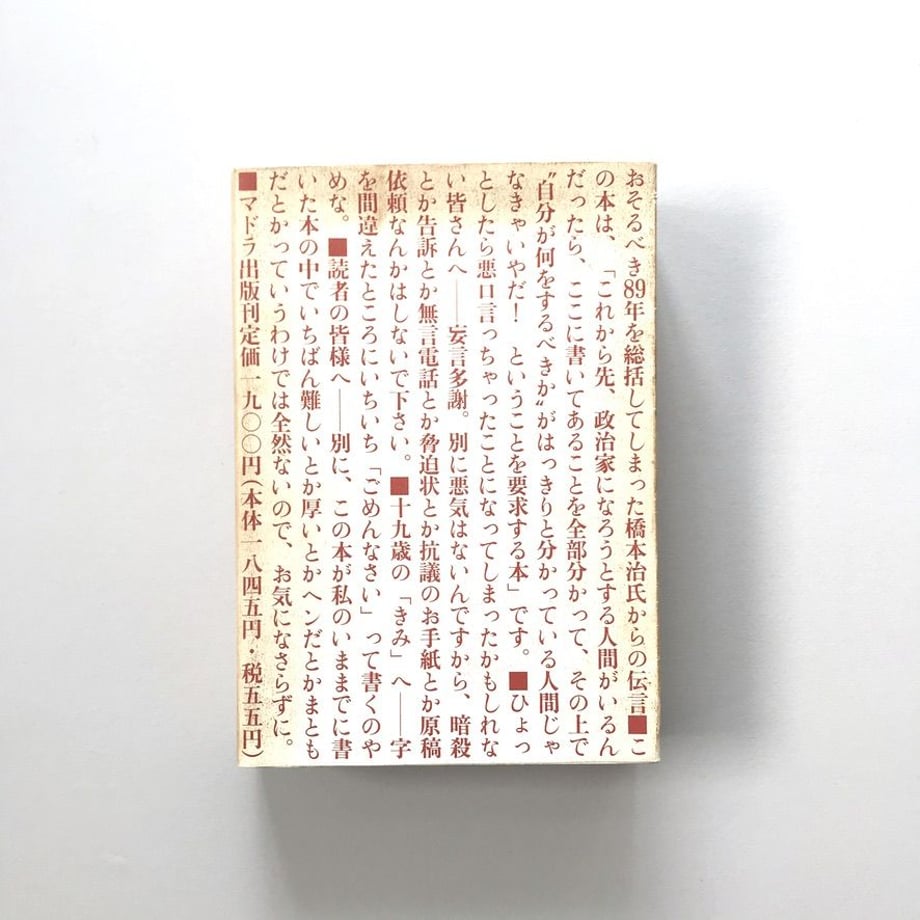 おそるべき89年を総括してしまった橋本治氏からの伝言■こ
の本は、「これから先、政治家になろうとする人間がいるん
だったら、ここに書いてあることを全部分かって、その上で
〝自分が何をするべきか〟がはっきりと分かっている人間じゃ
なきゃいやだ！　ということを要求する本」です。■ひょっ
としたら悪口言っちゃったことになってしまったかもしれな
い皆さんへ——妄言多謝。別に悪気はないんですから、暗殺
とか告訴とか無言電話とか脅迫状とか抗議のお手紙とか原稿
依頼なんかはしないで下さい。■十九歳の「きみ」へ——字
を間違えたところにいちいち「ごめんなさい」って書くのや
めな。■読者の皆様へ——別に、この本が私のいままでに書
いた本の中でいちばん難しいとか厚いとかヘンだとかまとも
だとかっていうわけでは全然ないので、お気になさらずに。
■マドラ出版刊定価一九〇〇円(本体一八四五円・税五五円)